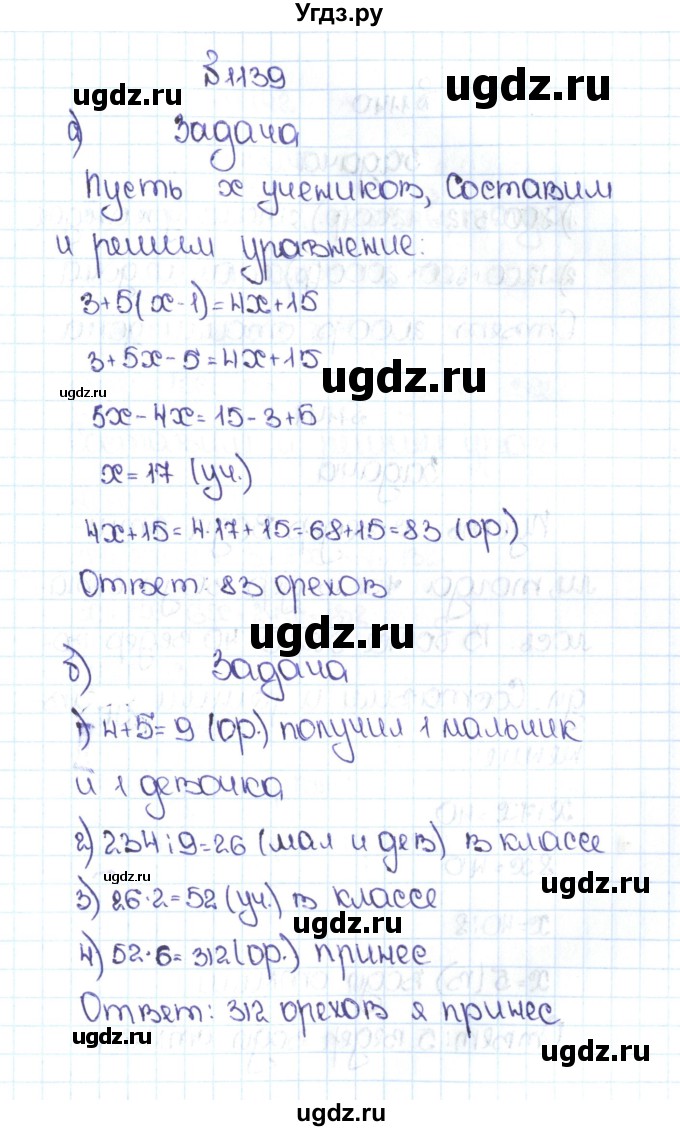 Угдз.ру
№1139
а) Задача
Пусть x учеников, Составим
и решим уравнение:
3+5(x-1)=4x+15
3+5x-5=4x+15
5x-4x=15-3+5
x=17 (уч.)
4x+15=4·17+15=68+15=83 (ор.)
Ответ: 83 орехов
б) Задача
1) 4+5=9 (ор.) получил 1 мальчик
и 1 девочка
2) 234:9=26 (мал и дев) в классе
3) 26·2=52 (уч.) в классе
4) 52·6=312 (ор.) принес
Ответ: 312 орехов я принес
ugdz.ru
ugdz.ru
ugdz.ru
ugdz.ru
ugdz.ru
ugdz.ru
ugdz.ru
ugdz.ru
ugdz.ru
ugdz.ru
ugdz.ru